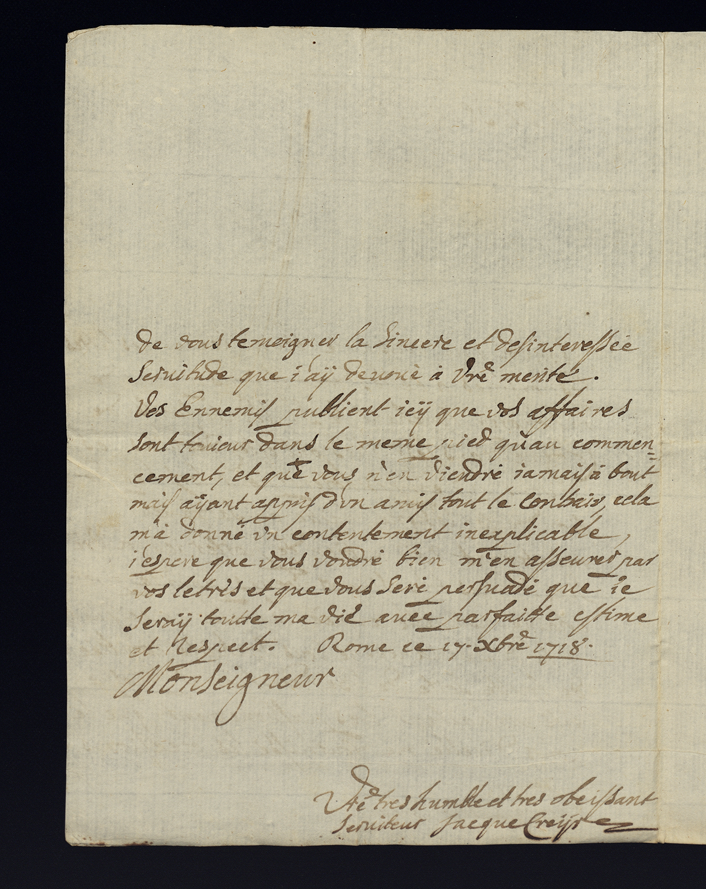 de vous temoigner la sincere et desinteressée
seruitude que i'aÿ devouè à Vrẽ merite.
Vos Ennemis publient icÿ que vos affaires
sont toujour dans le meme pied qu'au commen=
cement, et que vous n'en viendré iamais à bout
mais aÿant appris d'vn amis tout le Contrair, cela
m'à donné vn contentement inexplicable,
i'espere que vous voudré bien m'en asseurer par
vos letres et que vous seré persuadé que ie
seraÿ toutte ma vie avec parfaitte estime
et respect. Rome ce 17. Xbrẽ 1718.
Monseigneur
Vrẽ tres humble et tres obeissant
seruiteur Jacque